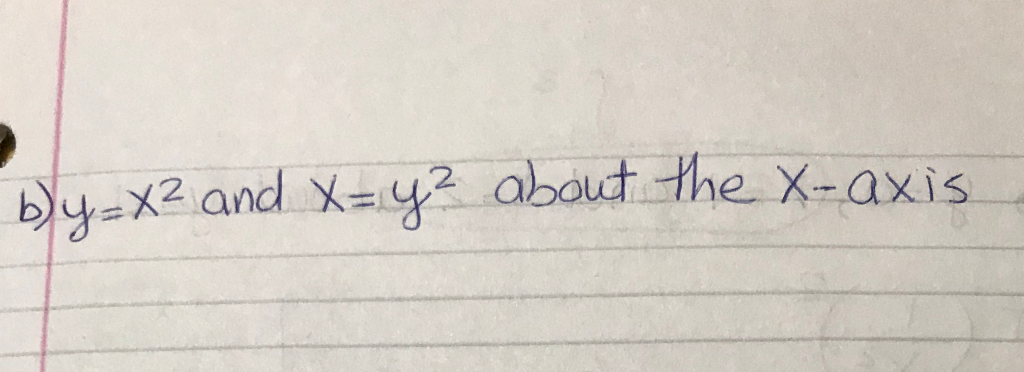 b) y=x² and x=y² about the x-axis